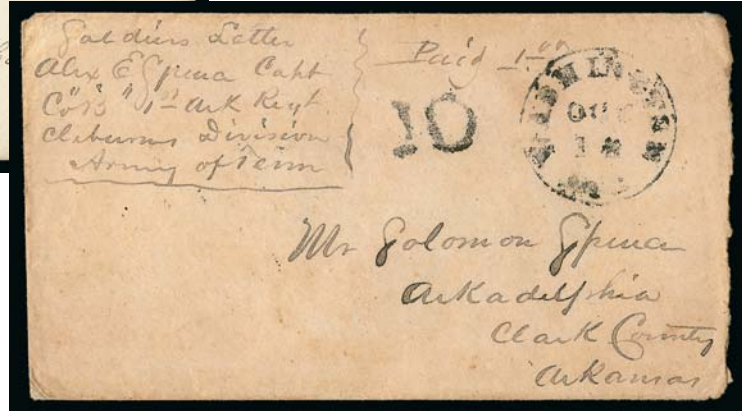 Soldiers Letter
Alex E Spence Capt
Co "B" 1st Ark Regt
Cleburns Division
Army of Tenn
Paid 1.00
10
WILMINGTON
12
Mr Solomon Spence
Arkadelphia
Clark County
Arkansas